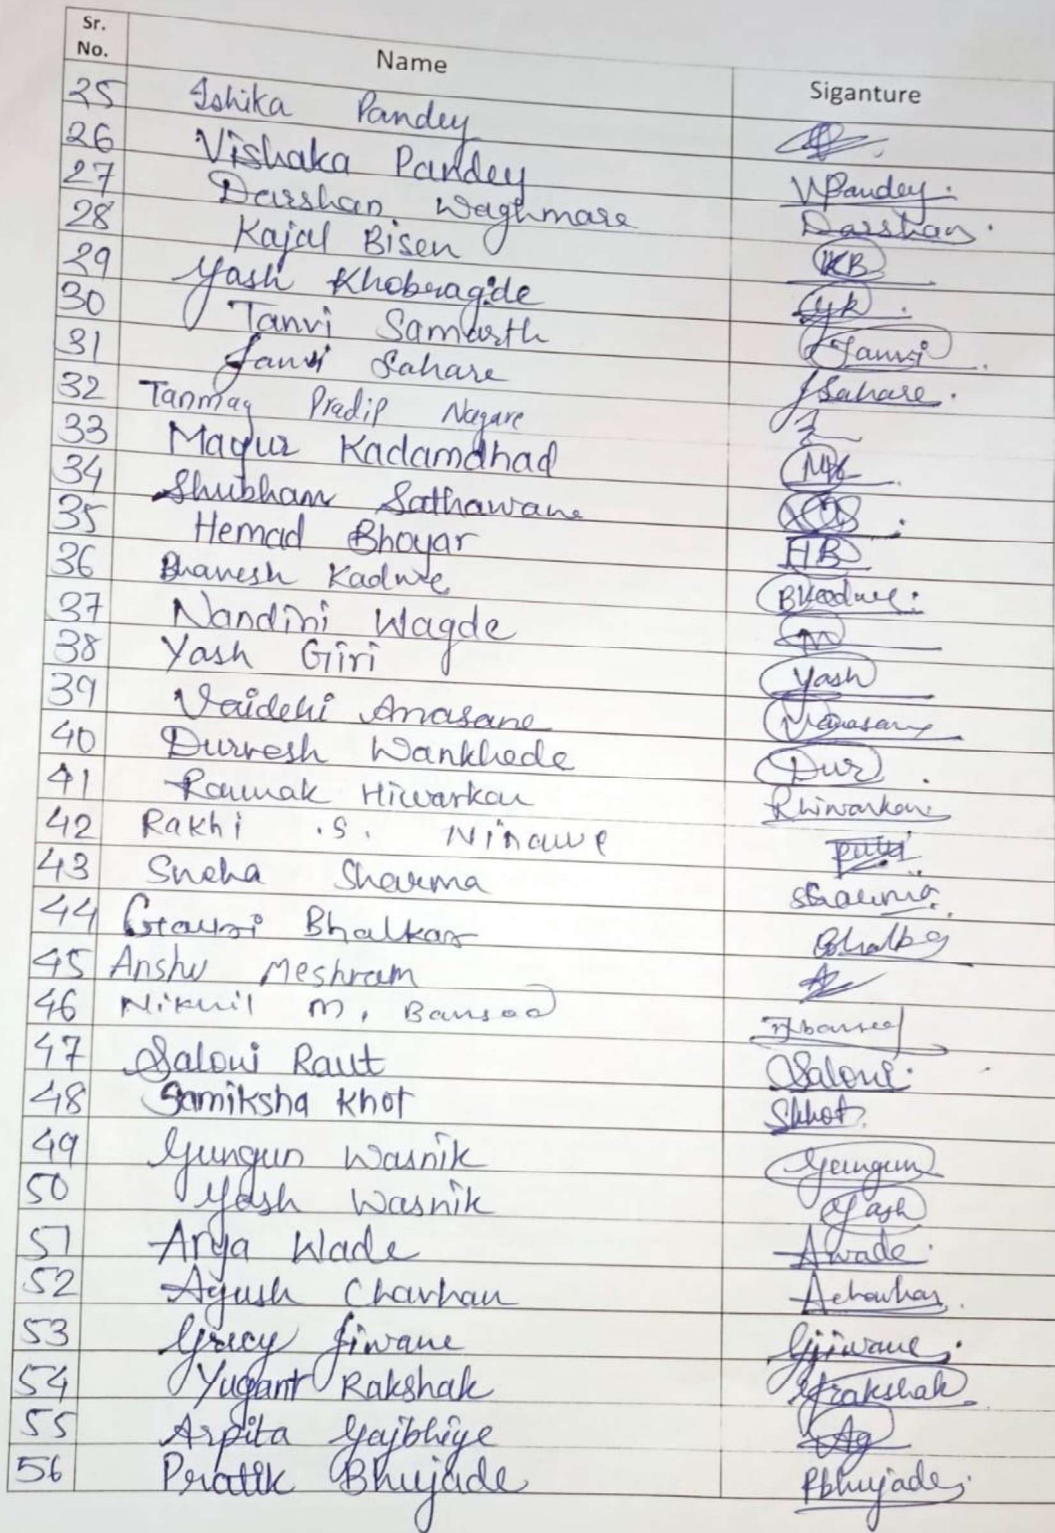 Sr. No. Name Siganture
25 Ishika Pandey
26 Vishaka Pandey VPandey.
27 Darshan Waghmare Darshan.
28 Kajal Bisen KB
29 Yash Khobragde YK.
30 Tanvi Samarth Tanvi.
31 Janvi Sahare JSahare.
32 Tanmay Pradip Nagare
33 Mayur Kadamdhad MK.
34 Shubham Sathawane
35 Hemad Bhoyar HB
36 Bhavesh Kadwe BKadwe.
37 Nandini Wagde
38 Yash Giri Yash
39 Vaidehi Anasane VAnasane
40 Durvesh Wankhede Dur.
41 Raunak Hiwarkar Rhiwarkar
42 Rakhi .S. Ninawe
43 Sneha Sharma Sharma.
44 Gauri Bhalkar
45 Anshu Meshram
46 Nikhil M. Bansod nbansod
47 Saloni Raut Saloni.
48 Samiksha Khot SKhot.
49 Gungun Wasnik Gungun
50 Yash Wasnik Yash
51 Arya Wade AWade.
52 Ayush Chavhan Achavhan.
53 Gracy Jiwane Gjiwane.
54 Yugant Rakshak Yrakshak.
55 Arpita Gajbhiye Ag
56 Pratik Bhujade Pbhujade.